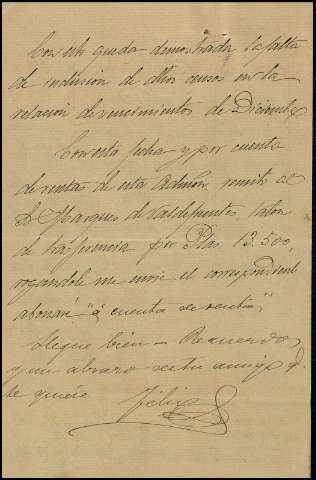 Con esto queda demostrada la falta
de inclusion de dhos censos en la
relación de vencimientos de Diciembre
Con esta fecha y por cuenta
de rentas de esta Admón. remito al
Sr. Marques de Valdefuentes, talon
de trasferencia por Ptas 13.500,
rogandole me envie el correspondiente
abonaré "á cuenta de rentas",
Llegue bien – Recuerdos,
y un abrazo de tu amigo q.
te quiere Felix